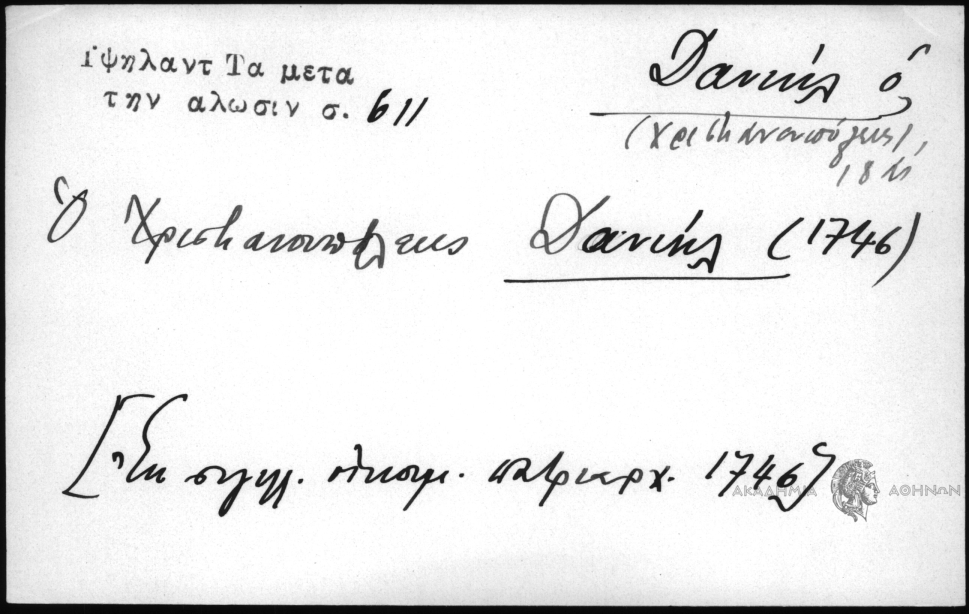 Ὑψηλαντ Τα μετα
την αλωσιν σ. 611
Δανιήλ ὁ
(Χριστιανουπόλεως),
18 αἰ
Ὁ Χριστιανουπόλεως Δανιήλ (1746)
[Ἐκ σιγιλλ. πατριαρχ. 1746]
ΑΚΑΔΗΜΙΑ ΑΘΗΝΩΝ